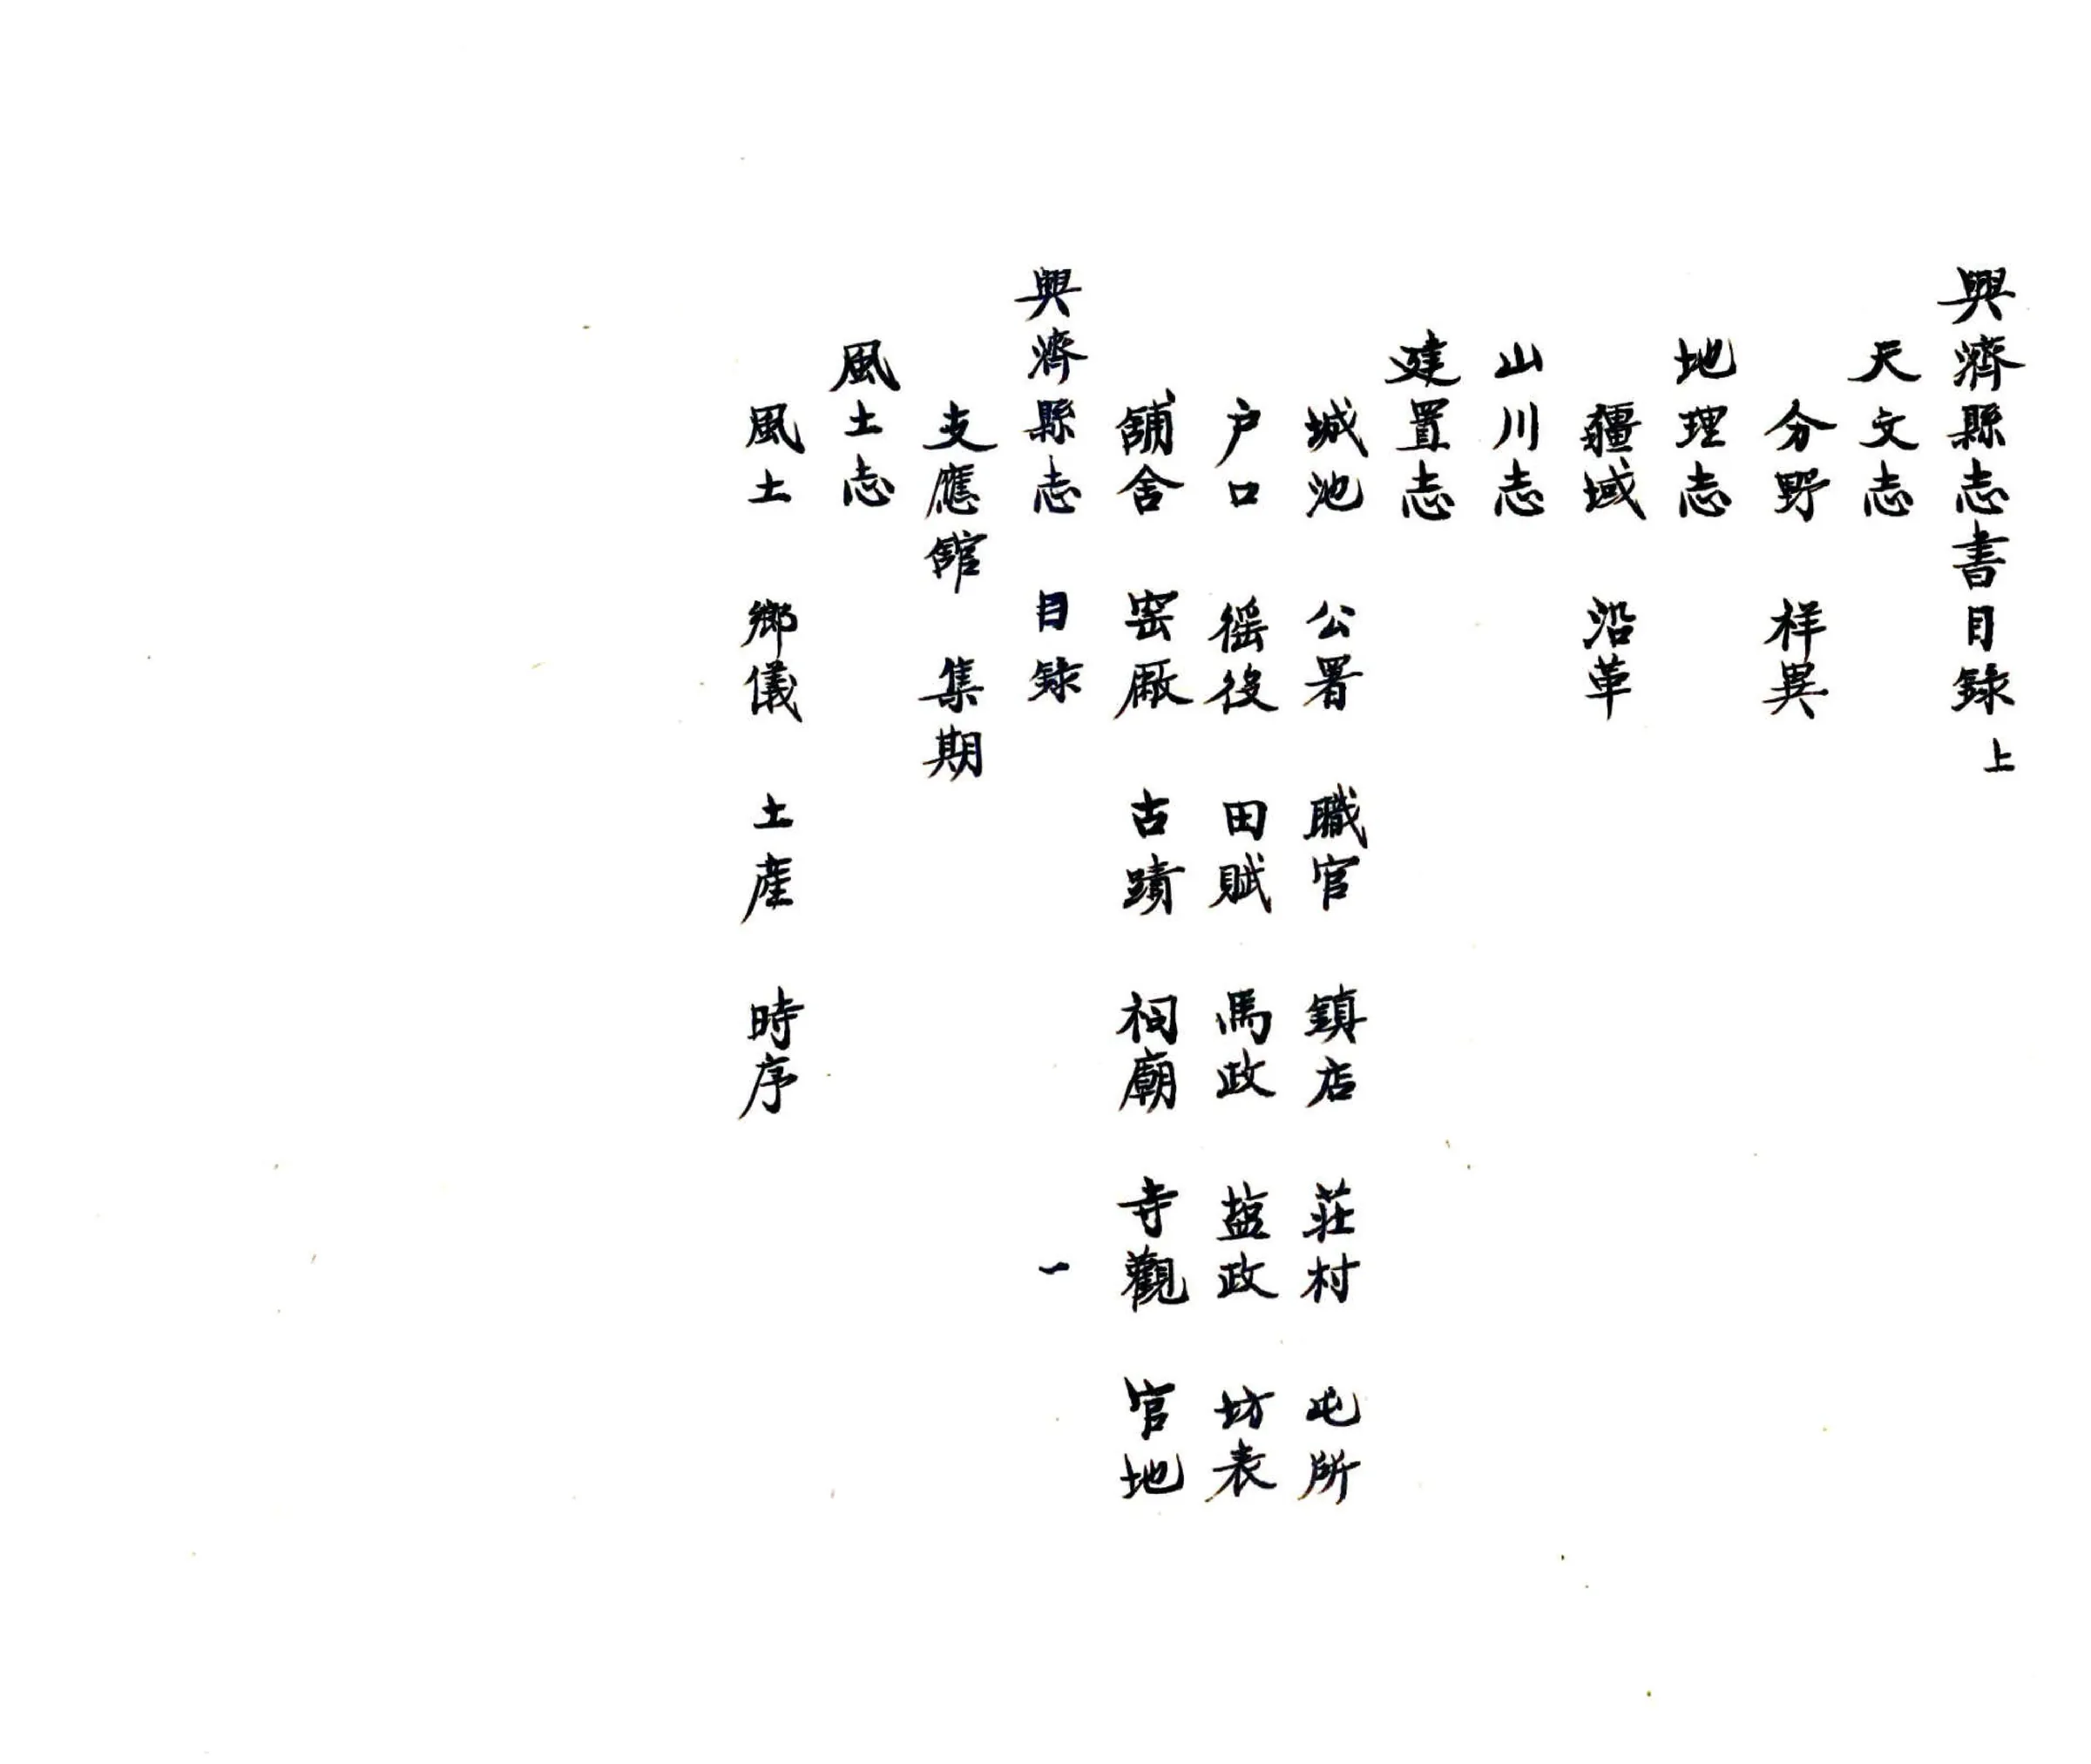 興濟縣志書目録上
天文志
分野　祥異
地理志
疆域　沿革
山川志
建置志
城池　公署　職官　鎮店　莊村　屯所
户口　徭役　田賦　馬政　塩政　坊表
舖舍　窑厰　古蹟　祠廟　寺觀　官地
興濟縣志　目録　一
支應館　集期
風土志
風土　鄉儀　土產　時序